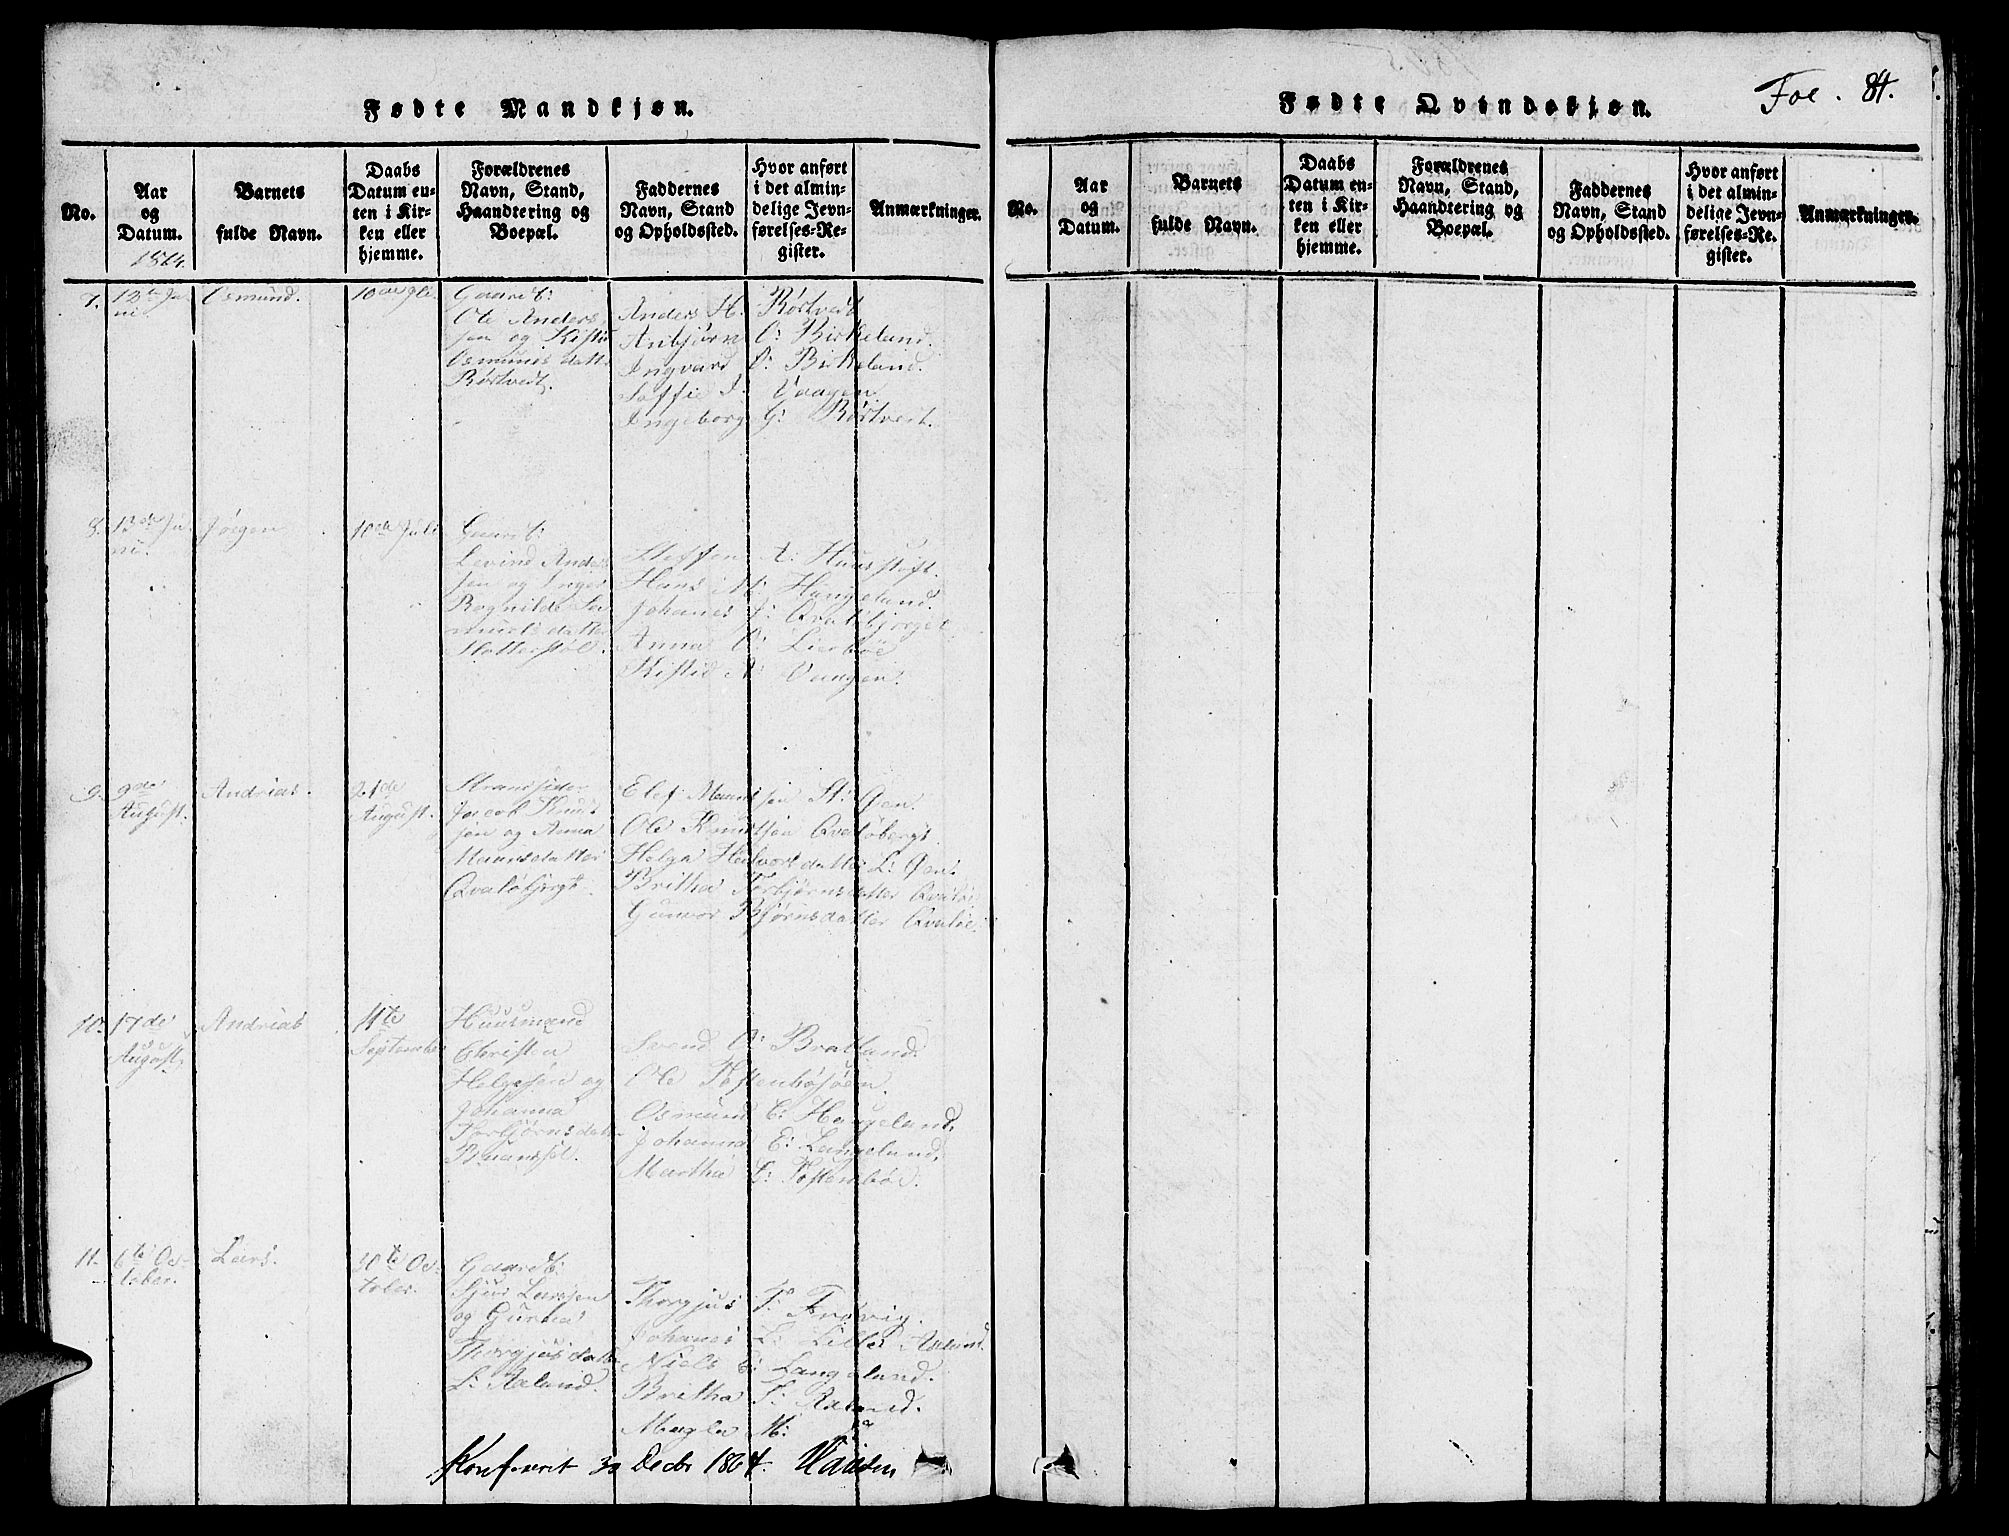 Fødte Mandkjøn.
No.
Aar
og
Datum.
1864.
Barnets
fulde Navn.
Daabs
Datum en-
ten i Kir-
ken eller
hjemme.
Forældrenes
Navn, Stand,
Haandtering og
Boepæl.
Faddernes
Navn, Stand
og Opholdssted.
Hvor anført
i det almin-
delige Jevn-
førelses-Re-
gister.
Anmærkninger.
7.
13de Ju-
ni
Osmund.
10de Juli
Gaardb:
Ole Anders
sen og Kisti
Osmunds datter
Røstvedt.
Anders H: Røstvedt
Anbjørn O: Birkeland.
Ingvard O: Birkeland.
Soffie J: Vaagen
Ingeborg G: Røstvedt.
8.
13de Ju-
ni.
Jørgen
10de Juli
Gaardb:
Levind Anders
sen og Inger
Rognilde Sa
muels datter
Steffen A: Huusstøft.
Hans M: Haugeland.
Johanes J:
Anna O: Lierbøe
Kistie A: Vaagen.
9.
9de
August.
Andrias.
21de
August.
Strandsider
Jacob Knud
sen og Anna
Maunsdatter
Qvaløbjergt.
Elef Maunssen St: Øen.
Ole Knudsen Qvaløbergt
Helga Hedvort datter L: Øen:
Britha Torbjørnsdatter Qvaløe
Gunvor Bjørnsdatter Qvaløe.
10.
17de
August.
Andrias
11te
September
Huusmand
Christen
Helgesen og
Johanna
Torbjørnsdatter
Svend O: Bratland.
Ole Tostenbøsøen.
Osmund C: Haugeland,
Johanna E: Langeland,
Martha L: Tostenbøe.
11.
6te Oc-
tober.
Lars.
30te Oc-
tober.
Gaardb:
Sjur Larssen
og Gunna
Thorgjusdatter
L: Aaland.
Thorgjus T: Frøvig.
Johanes L: Lille Aaland
Niels E: Langeland.
Britha T: Aaland.
Magla M:
Konfereret 30 Decbr 1864.
Fødte Qvindekjøn.
Fol. 84.
No.
Aar
og
Datum.
Barnets
fulde Navn.
Daabs
Datum en-
ten i Kir-
ken eller
hjemme.
Forældrenes
Navn, Stand,
Haandtering og
Boepæl.
Faddernes
Navn, Stand
og Opholdssted.
Hvor anført
i det almin-
delige Jevn-
førelses-Re-
gister.
Anmærkninger.